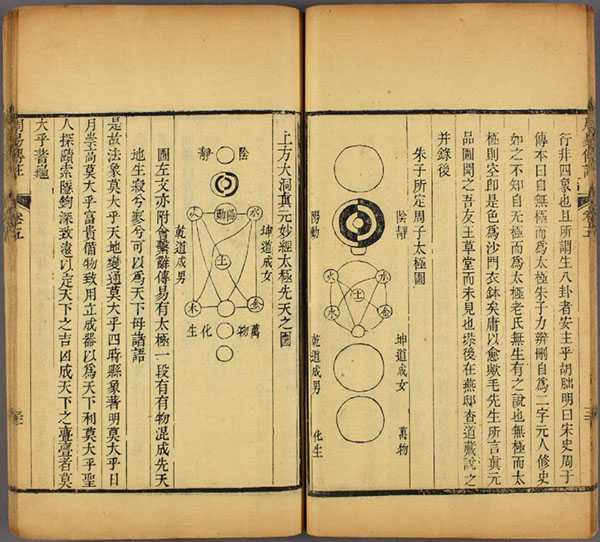 周易傳註
行非四象也且所謂生八卦者安主乎胡朏明曰宋史周子
傳本曰自無極而爲太極朱子力辨刪自爲二字元人修史
如之不知自无極而爲太極老氏無生有之說也無極而太
極則空即是色爲沙門衣鉢矣庸以愈歟毛先生所言眞元
品圖聞之吾友王草堂而未見也後在燕邸查道藏說之
并錄後
朱子所定周子太極圖
陰靜
陽動
水
火
土
金
木
坤道成女
乾道成男
萬物
化生
上方大洞眞元妙經太極先天之圖
陰靜
陽動
水
火
土
金
木
坤道成女
乾道成男
萬物化生
圖左文亦附會繫辭傳易有太極一段有有物混成先天
地生寂兮寥兮可以爲天下母諸語
是故法象莫大乎天地變通莫大乎四時縣象著明莫大乎日
月崇高莫大乎富貴備物致用立成器以爲天下利莫大乎聖
人探賾索隱鉤深致遠以定天下之吉凶成天下之亹亹者莫
大乎蓍龜
周易傳註
卷五